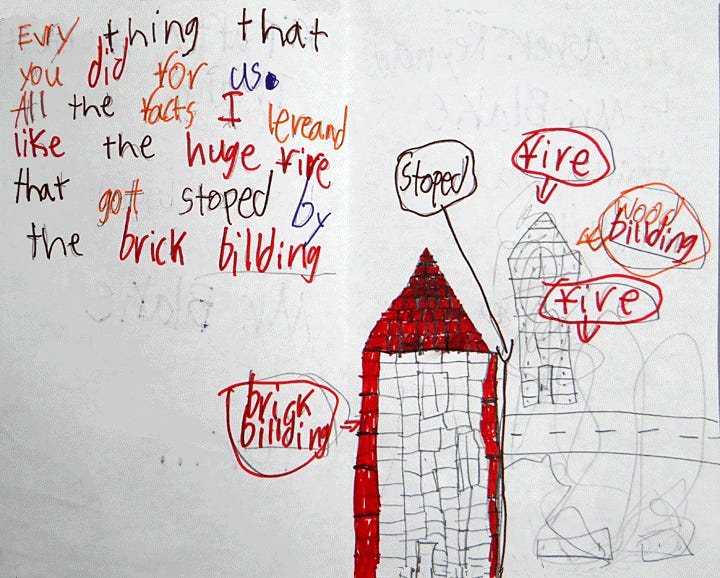 Evry thing that
you did for us.
All the facts I lereand
like the huge fire
that got stoped by
the brick bilding
stoped
fire
wood
bilding
fire
brick
bilding